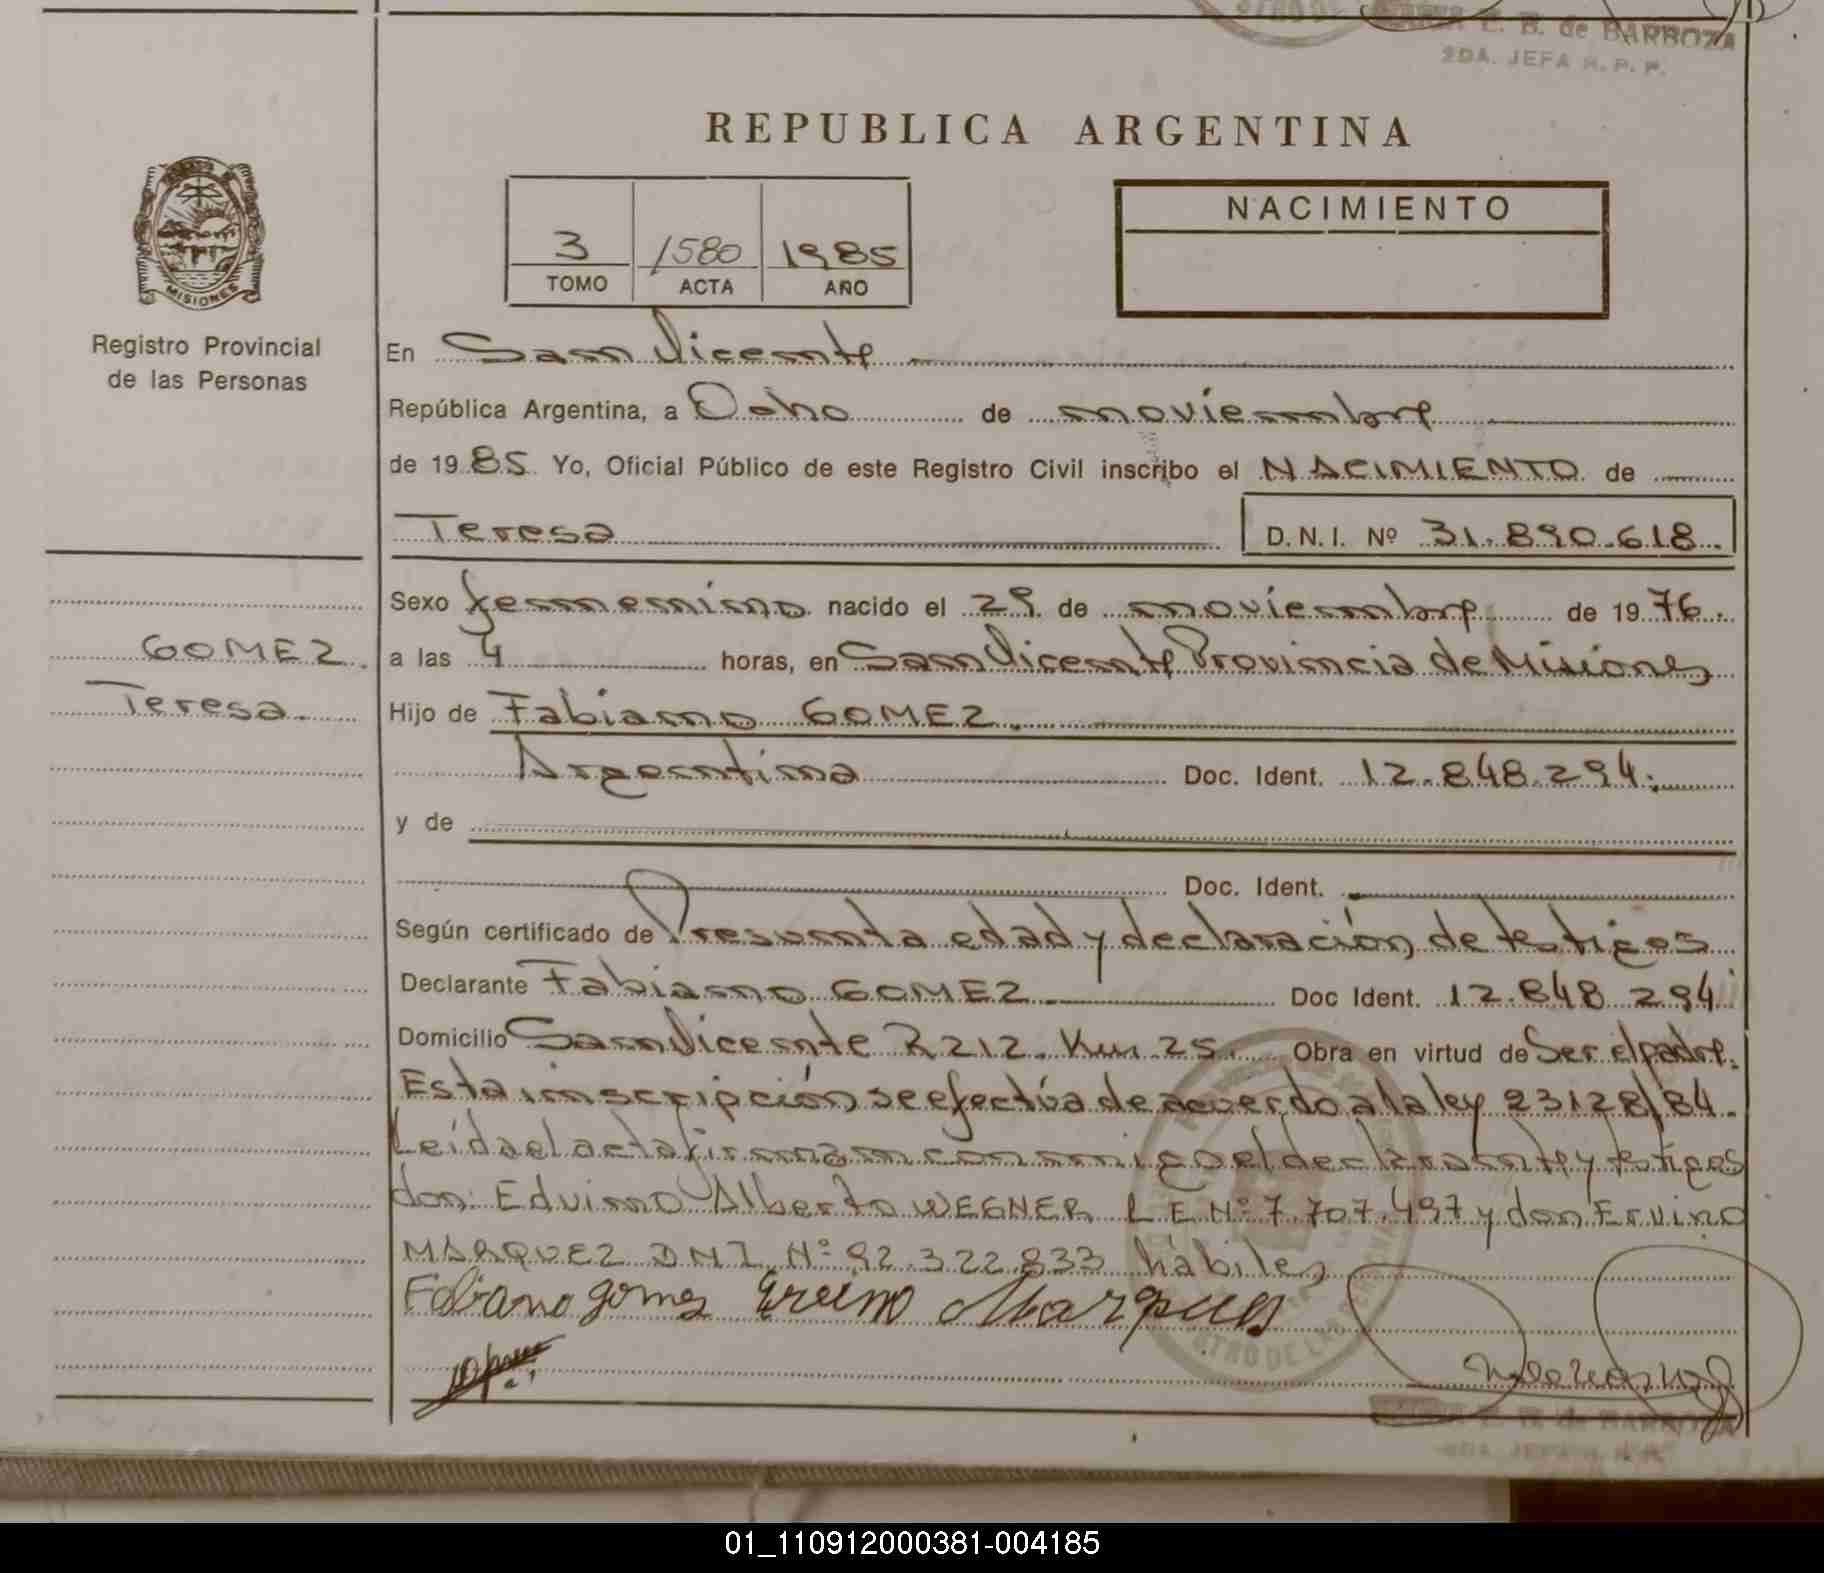 E. B. de BARBOZA
2DA. JEFA R. P. P.
REPUBLICA ARGENTINA
MISIONES
Registro Provincial
de las Personas
3 1580 1985
TOMO ACTA AÑO
NACIMIENTO
En San Vicente
República Argentina, a Ocho de noviembre
de 19 85 Yo, Oficial Público de este Registro Civil inscribo el NACIMIENTO de
Teresa D.N.I. Nº 31.890.618.
Sexo femenino nacido el 29 de noviembre de 19 76.
GOMEZ.
Teresa.
a las 4 horas, en San Vicente Provincia de Misiones
Hijo de Fabiano GOMEZ.
Argentina Doc. Ident. 12.848.294.
y de
Doc. Ident.
Según certificado de Presunta edad y declaración de testigos
Declarante Fabiano GOMEZ Doc Ident. 12.848 294
Domicilio San Vicente R 212. Km. 25. Obra en virtud de Ser el padre.
Esta inscripción se efectúa de acuerdo a la ley 23128/84.
Leída el acta firman conmigo el declarante y testigos
don: Edvino Alberto WEGNER L E Nº 7.707.497 y don Ervino
MARQUEZ D N I. Nº 92.322.833 hábiles
Fabiano gomez Ervino Marques
E. B. de BARBOZA
2DA. JEFA
01_110912000381-004185